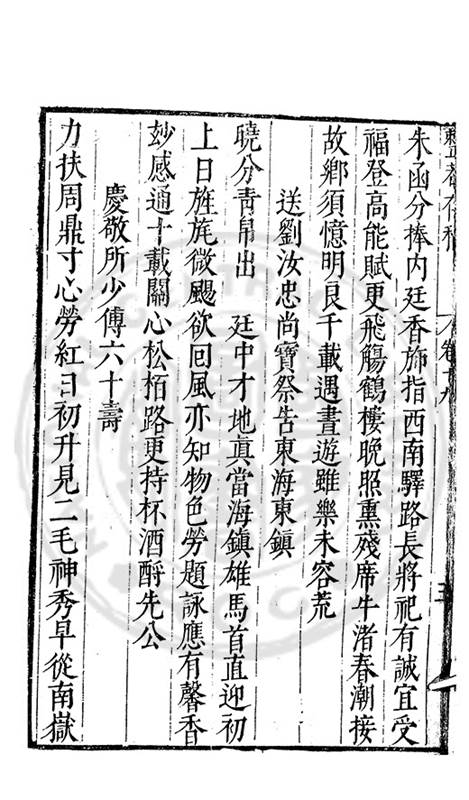 朱函分捧内廷香飾指西南驛路長將祀有誠宜受
福登高能賦更飛觴鶴樓晚照熏殘席牛渚春潮接
故鄉須憶明良千載遇晝遊雖樂未容荒
送劉汝忠尚寶祭告東海東鎮
曉分靑帛出 廷中才地眞當海鎮雄馬首直迎初
上日旌旄微颺欲回風亦知物色勞題詠應有馨香
玅感通十載關心松栢路更持杯酒酹先公
慶敬所少傅六十壽
力扶周鼎寸心勞紅日初升見二毛神秀早從南嶽